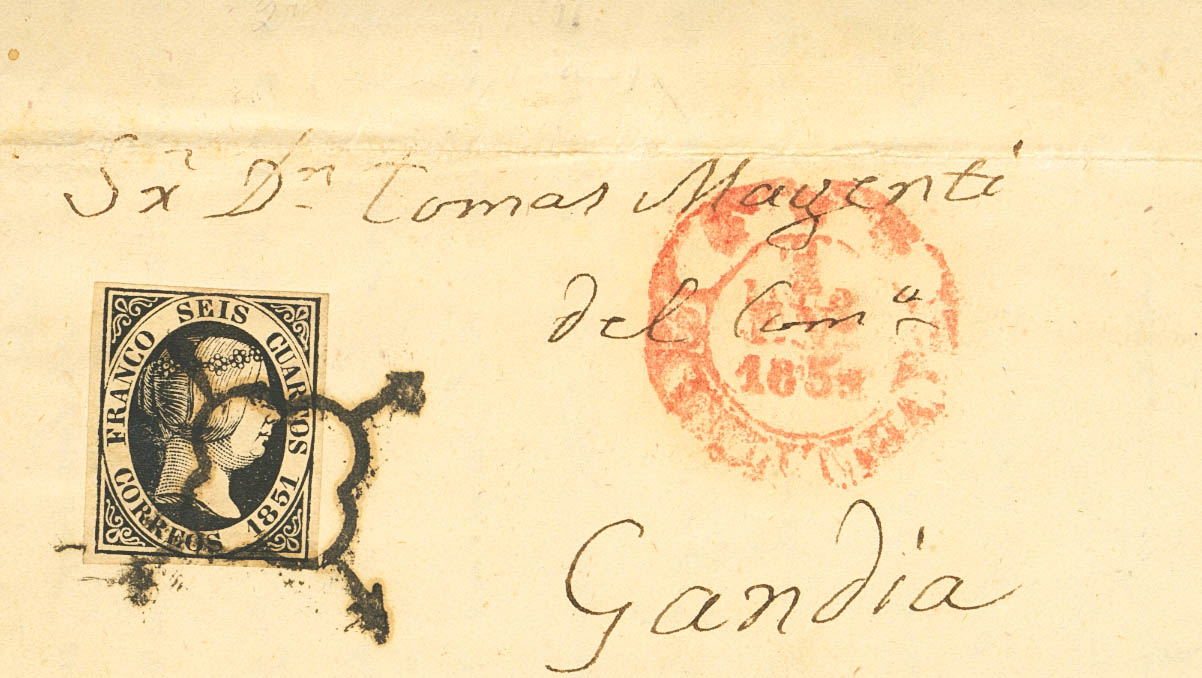 Sr Dn Tomas Magenti
del Comª
Gandia
FRANCO SEIS CUARTOS
CORREOS 1851
185